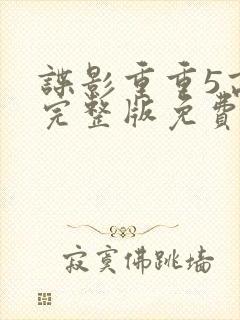 諜影重重5
完整版免費
寂寞佛跳墙